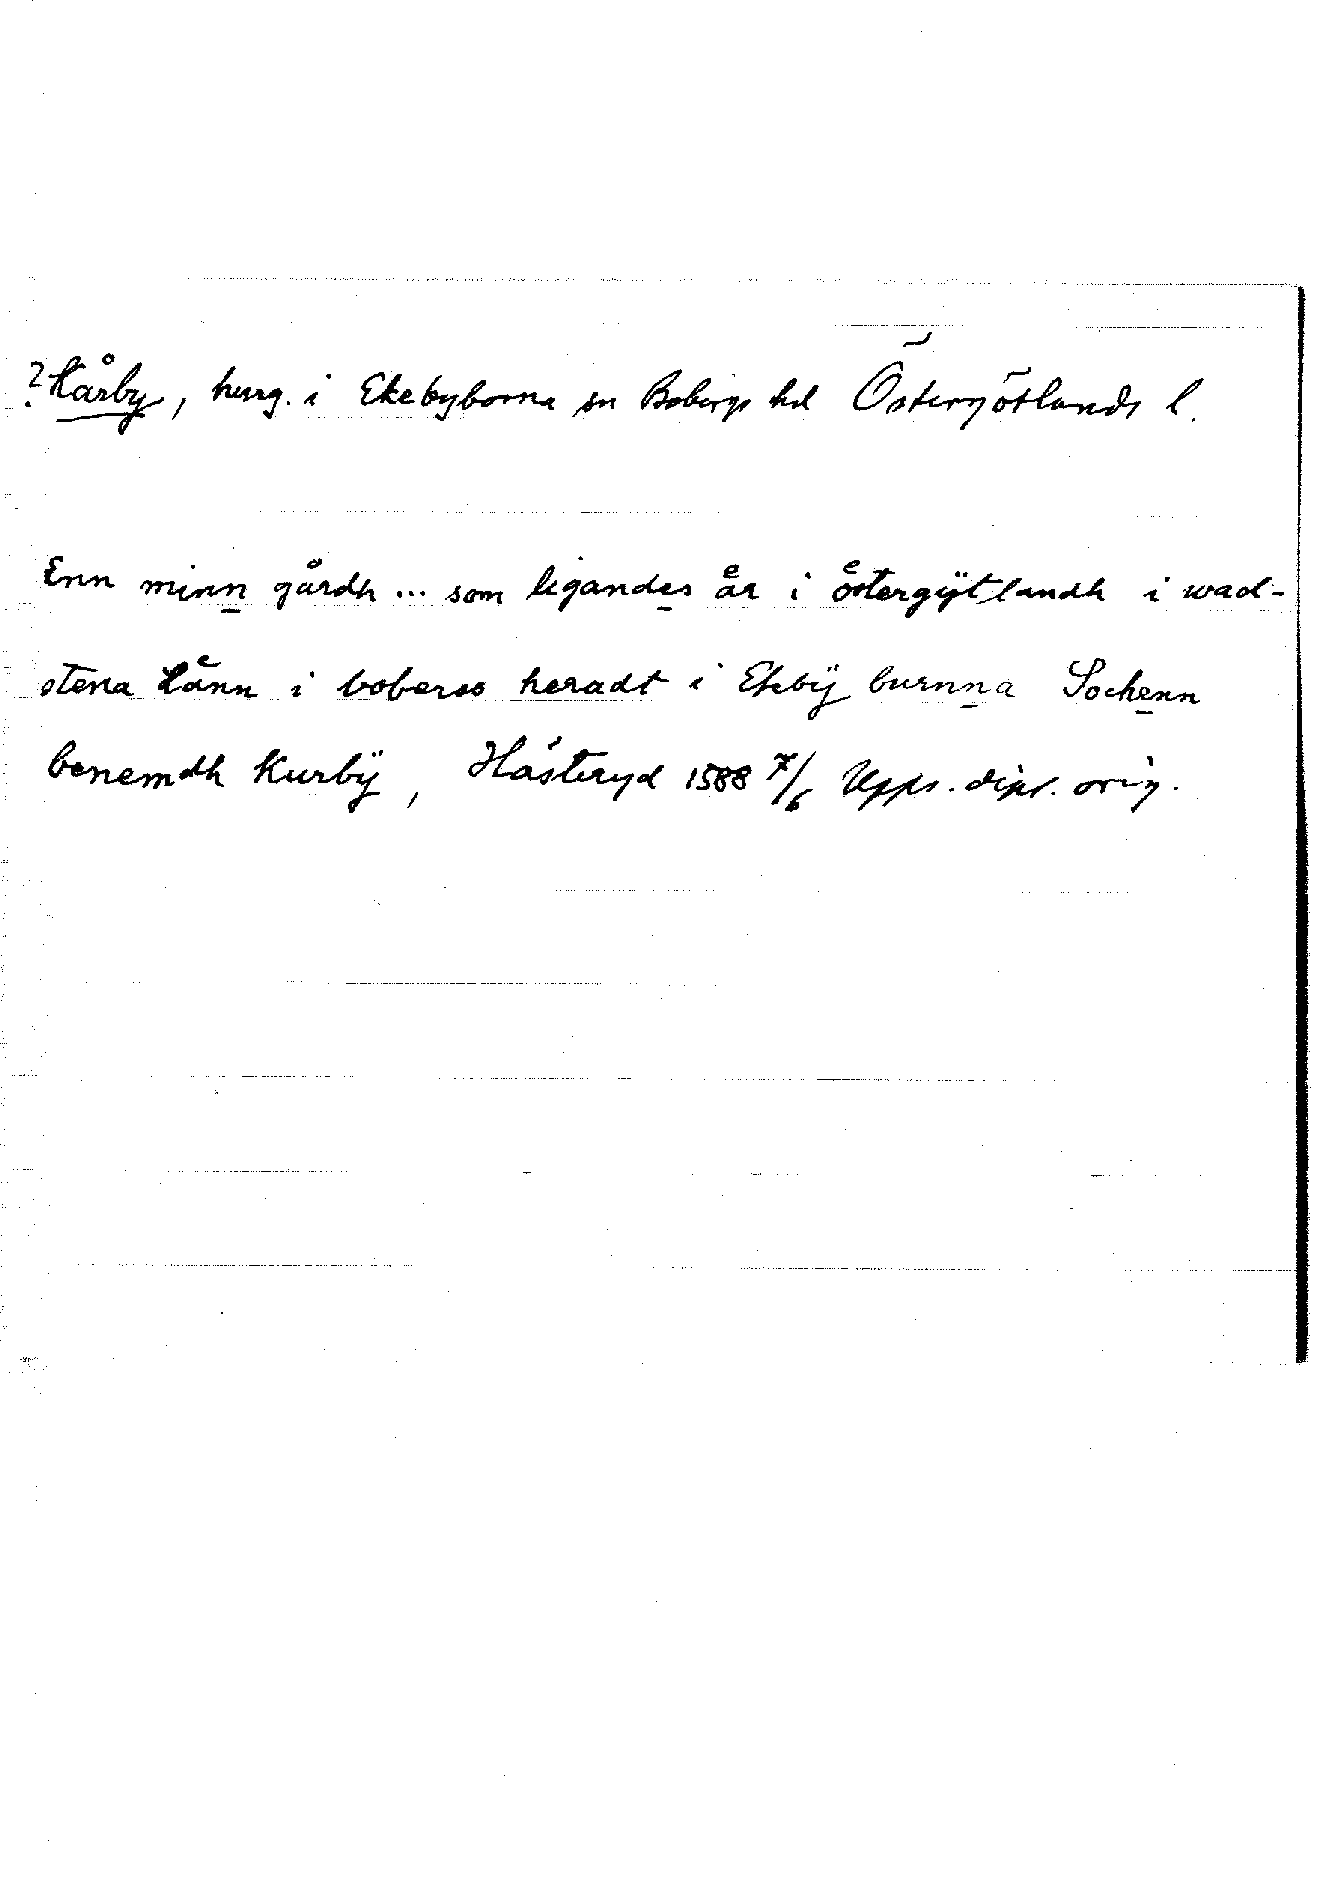 ? Kårby, herrg. i Ekebyborna sn Bobergs hd Östergötlands l.
Enn minn gårdh ... som ligandes aͤr i oͤstergÿtlandh i wad-
stena Laͤnn i boberss heradt i Ekebÿ burnna Sochenn
benemdh Kurbÿ, Hästeryd 1588 7/6 Upps. dipl. orig.